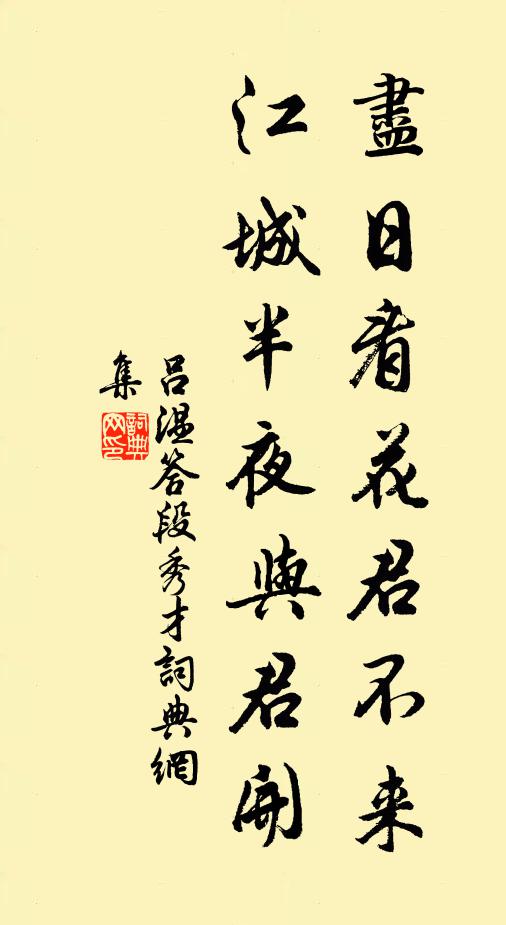 盡日看花君不来
江城半夜與君開
吕温答段秀才詞典網
集
詞典
网印